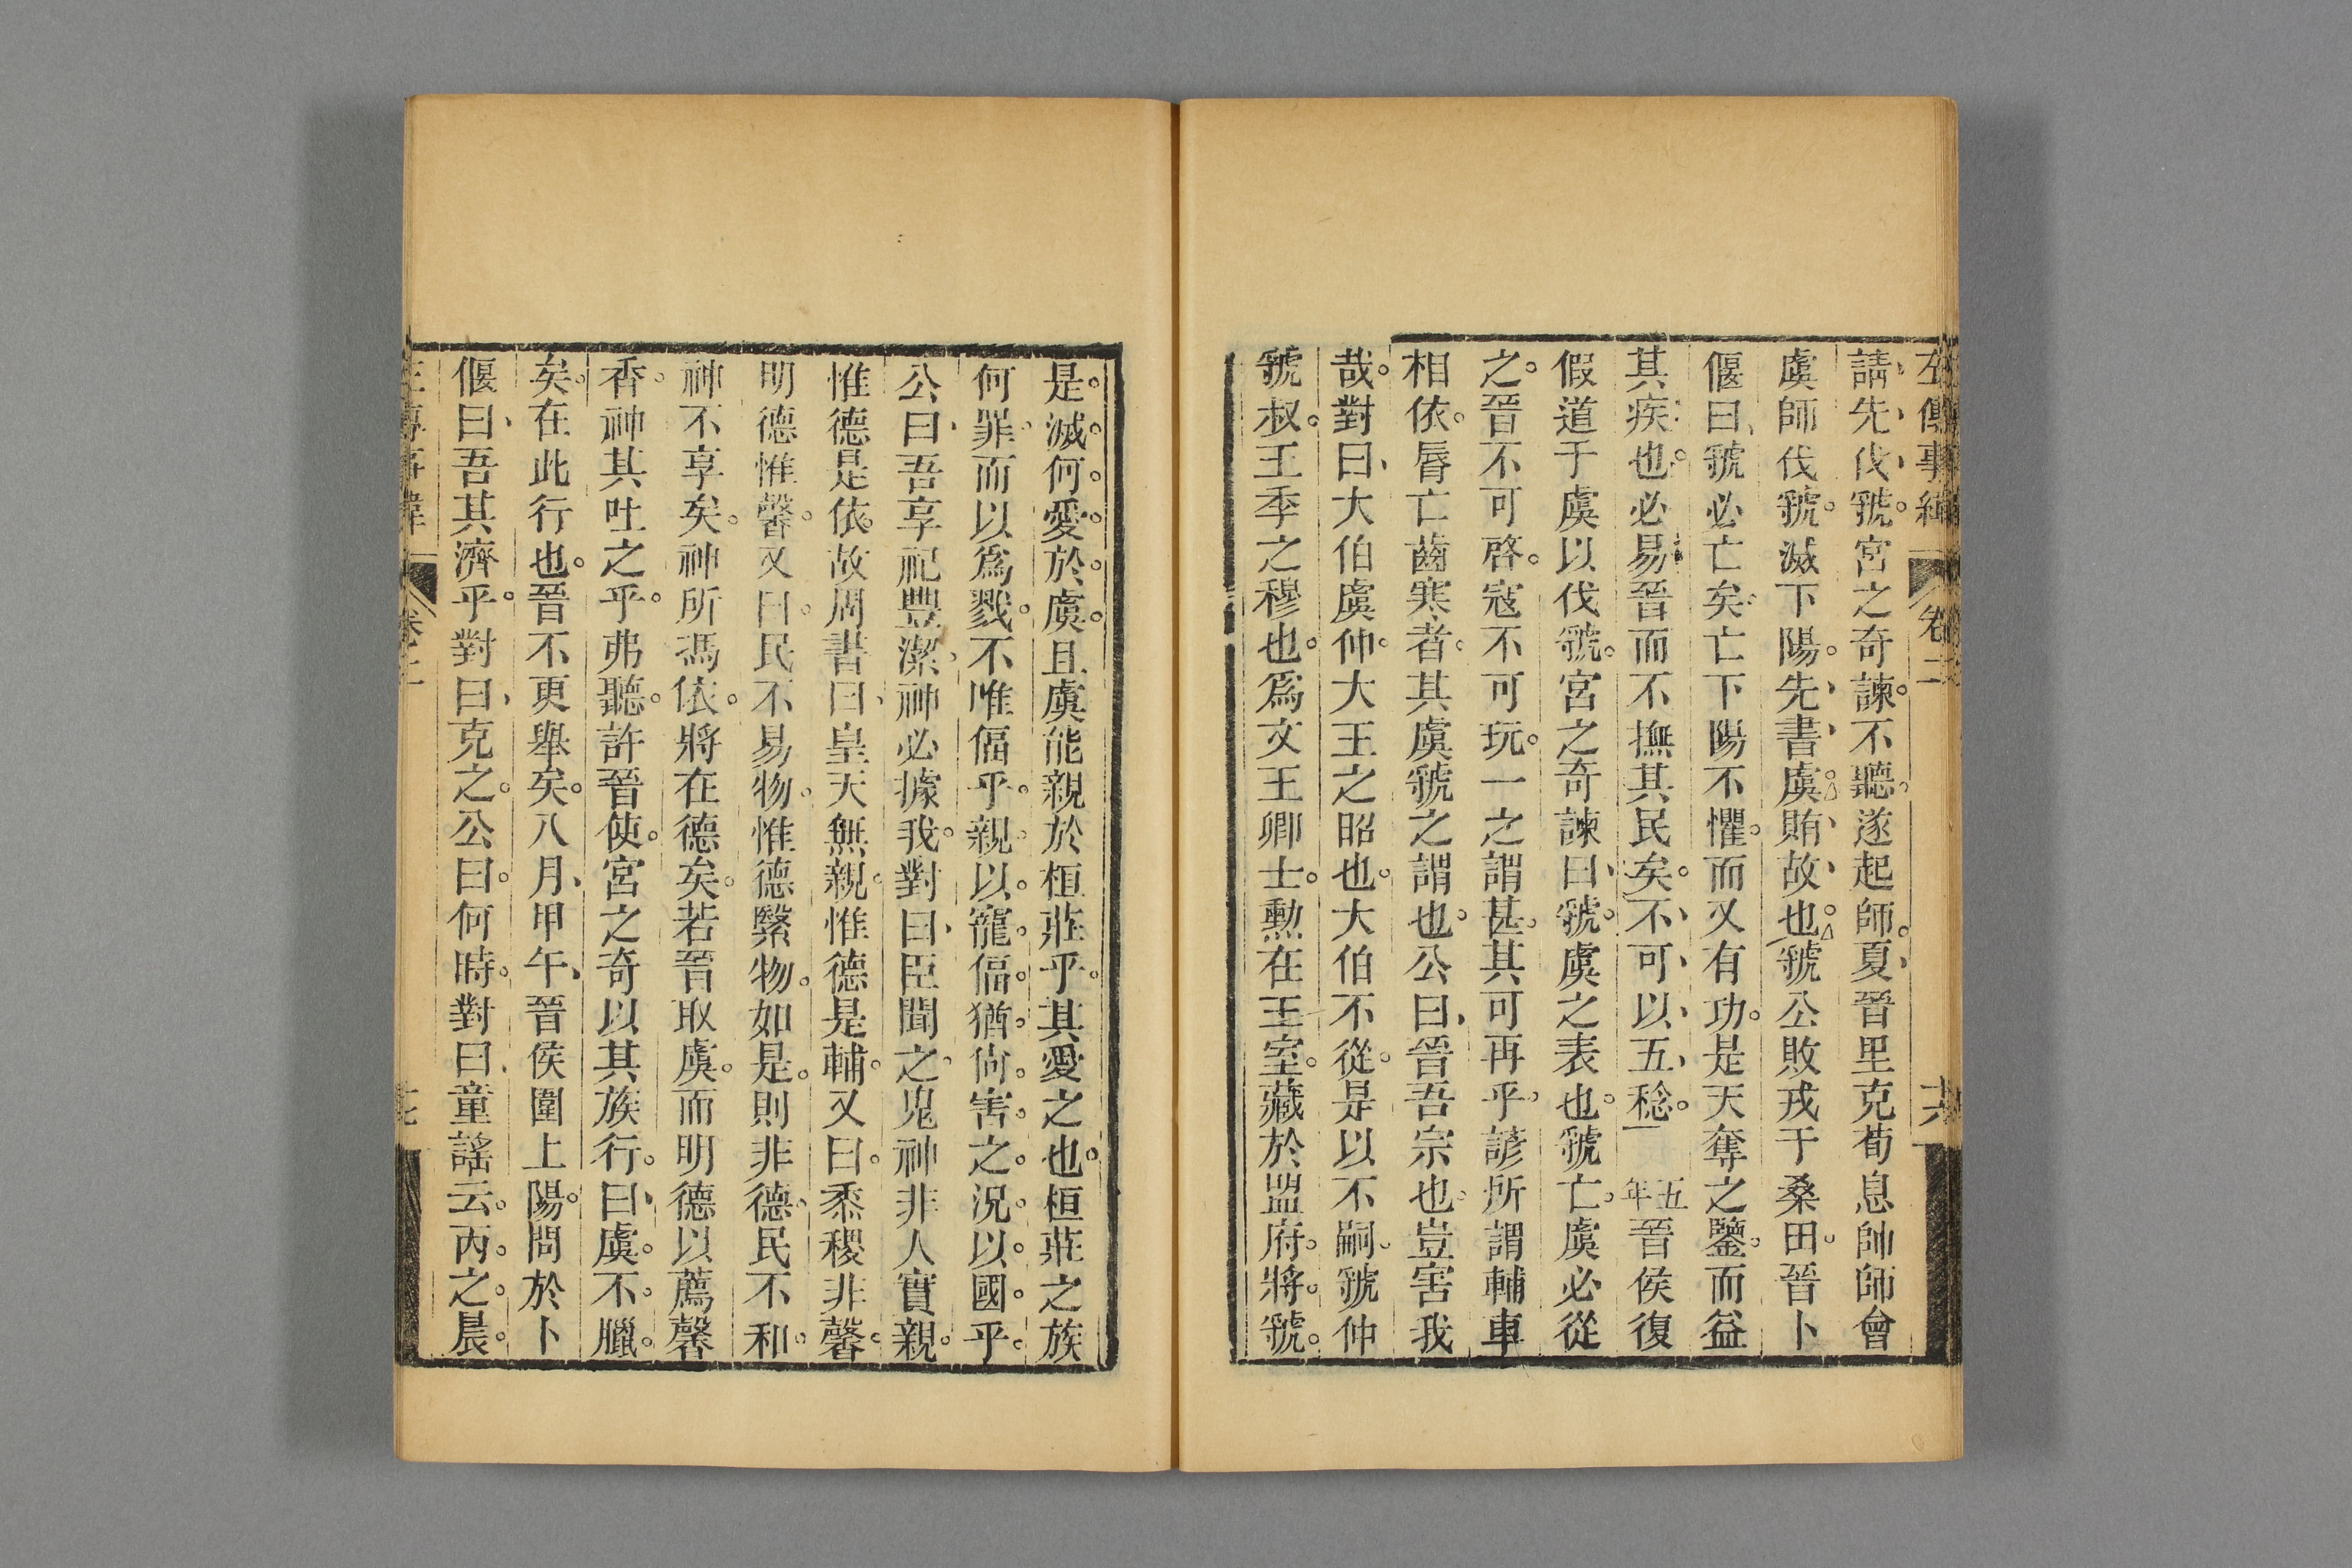 左傳事緯
卷二
十六
請先伐虢宮之奇諫不聽遂起師夏晉里克荀息帥師會
虞師伐虢滅下陽先書虞賄故也虢公敗戎于桑田晉卜
偃曰虢必亡矣亡下陽不懼而又有功是天奪之鑒而益
其疾也必易晉而不撫其民矣不可以五稔五年晉侯復
假道于虞以伐虢宮之奇諫曰虢虞之表也虢亡虞必從
之晉不可啓寇不可玩一之謂甚其可再乎諺所謂輔車
相依脣亡齒寒者其虞虢之謂也公曰晉吾宗也豈害我
哉對曰大伯虞仲大王之昭也大伯不從是以不嗣虢仲
虢叔王季之穆也爲文王卿士勳在王室藏於盟府將虢
是滅何愛於虞且虞能親於桓莊乎其愛之也桓莊之族
何罪而以爲戮不唯偪乎親以寵偪猶尙害之況以國乎
公曰吾享祀豐潔神必據我對曰臣聞之鬼神非人實親
惟德是依故周書曰皇天無親惟德是輔又曰黍稷非馨
明德惟馨又曰民不易物惟德繄物如是則非德民不和
神不享矣神所馮依將在德矣若晉取虞而明德以薦馨
香神其吐之乎弗聽許晉使宮之奇以其族行曰虞不臘
矣在此行也晉不更舉矣八月甲午晉侯圍上陽問於卜
偃曰吾其濟乎對曰克之公曰何時對曰童謠云丙之晨
左傳事緯
卷二